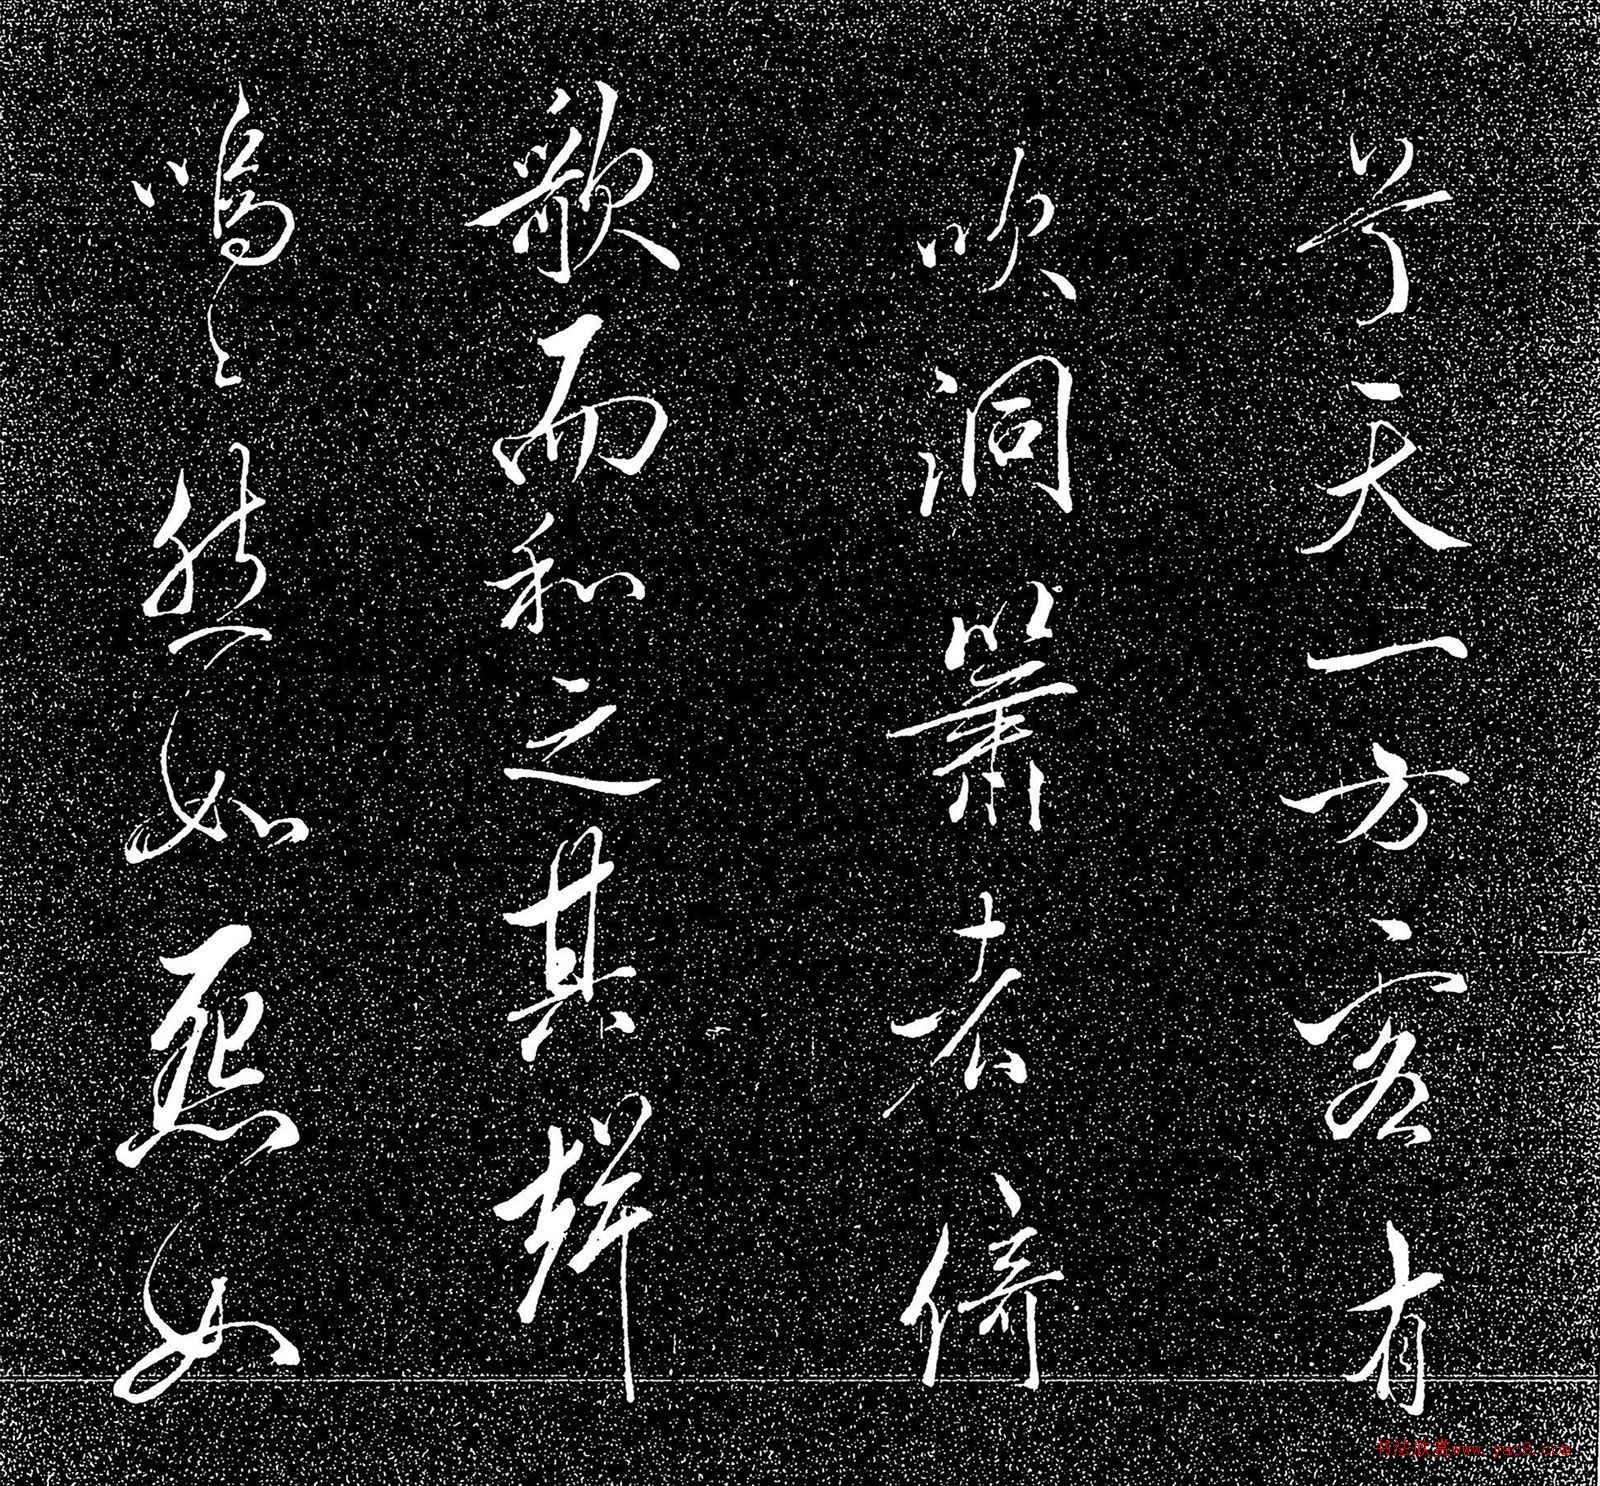 兮天一方客有
吹洞簫者倚
歌而和之其聲
嗚々然如怨如
书法欣赏www.yac8.com